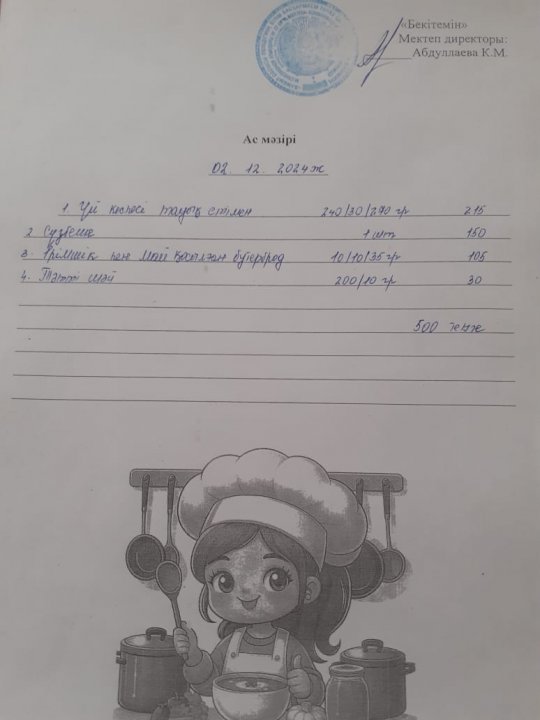 «Бекітемін»
Мектеп директоры:
Абдуллаева К.М.
Ас мәзірі
02. 12. 2024ж
1. Үй кеспесі тауық етімен 240/30/270 гр 215
2. Сүзбеше 1 шт 150
3. Ірімшік пен май қосылған бутерброд 10/10/35 гр 105
4. Тәтті шай 200/10 гр 30
500 теңге